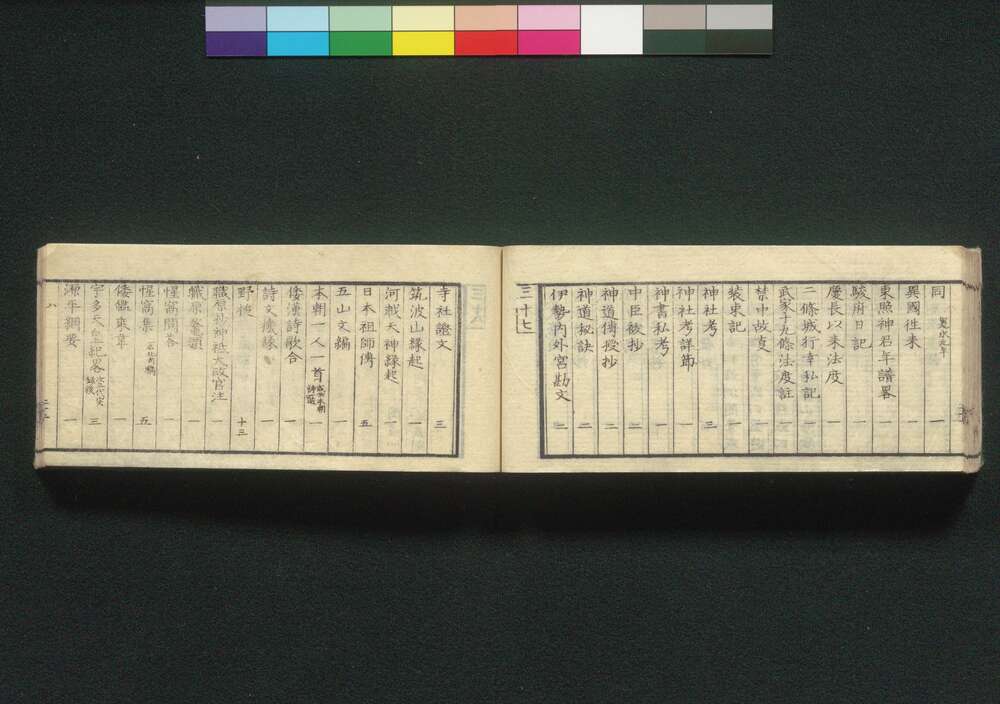 同 寛永九年 一
異國往来 一
東照神君年譜畧 一
駿府日記 一
慶長以来法度 一
二條城行幸私記 一
武家十九條法度註 一
禁中故支 一
装束記 一
神社考 三
神社考詳節 一
神書私考 一
中臣祓抄 二
神道傳授抄 二
神道秘訣 二
伊勢内外宮勘文 二
三十七
寺社證文 三
筑波山縁起 一
河越天神縁起 一
日本祖師傳 五
五山文編 一
本朝一人一首 一
倭漢詩歌合 一
詩文機縁 一
野槌 十三
職原抄神祇太政官注 一
職原鼇頭 一
惺窩問答 一
惺窩集 五
倭鑑求草 一
宇多天皇紀畧 三
源平綱要 一